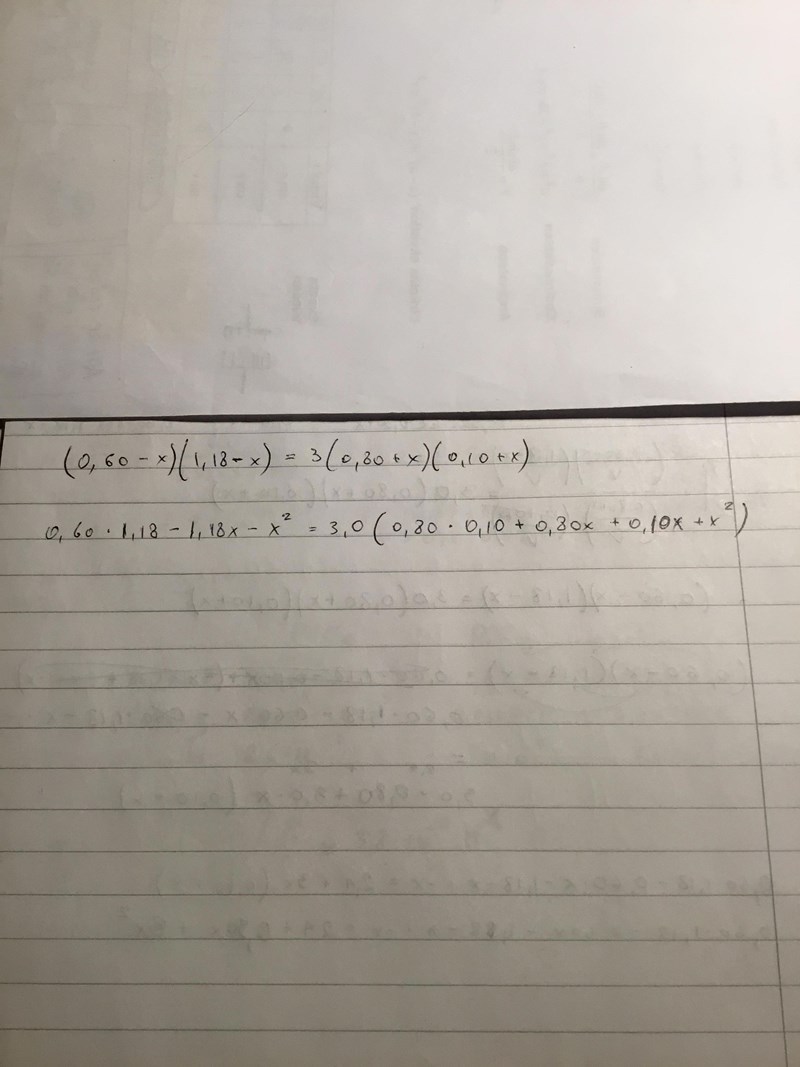 (0,60 - x)(1,18 - x) = 3(0,80 + x)(0,10 + x)
0,60 · 1,18 - 1,18x - x² = 3,0 (0,80 · 0,10 + 0,80x + 0,10x + x²)